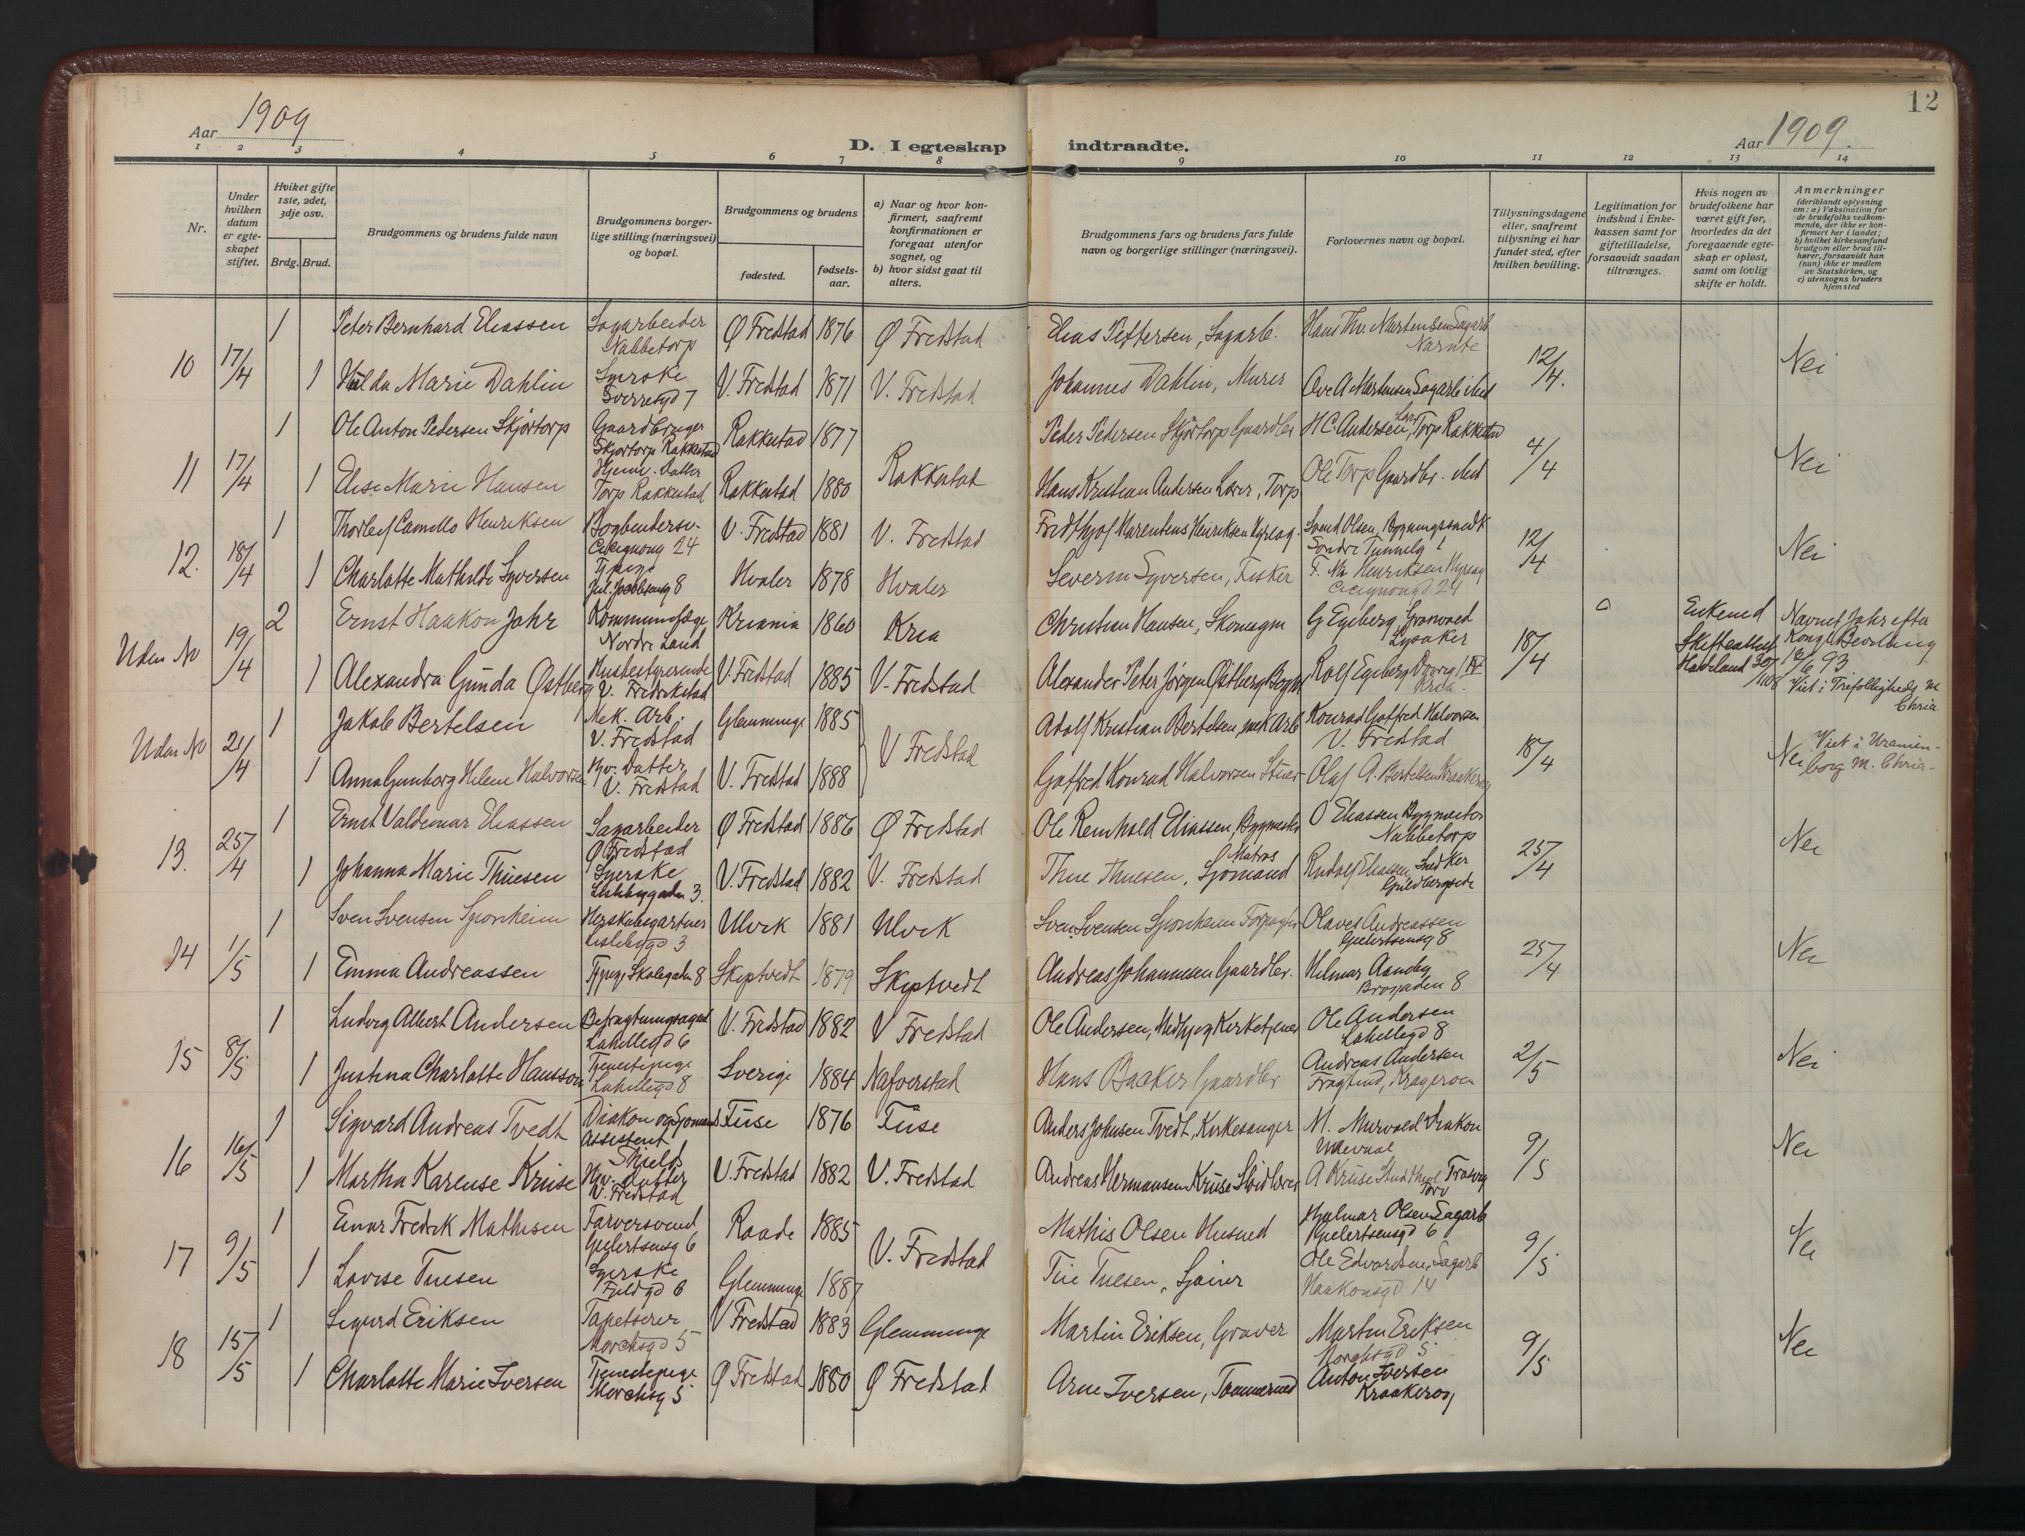 Aar 1909
D. I egteskap indtraadte.
Aar 1909.
12
1 2 3 4 5 6 7 8 9 10 11 12 13 14
Nr.
Under hvilken datum er egteskapet stiftet.
Hviket gifte 1ste, 2det, 3dje osv.
Brdg. Brud.
Brudgommens og brudens fulde navn
Brudgommens borgerlige stilling (næringsvei) og bopæl.
Brudgommens og brudens
fødested.
fødselsaar.
a) Naar og hvor konfirmert, saafremt konfirmationen er foregaat utenfor sognet, og
b) hvor sidst gaat til alters.
Brudgommens fars og brudens fars fulde navn og borgerlige stillinger (næringsvei).
Forlovernes navn og bopæl.
Tillysningsdagene eller, saafremt tillysning ei har fundet sted, efter hvilken bevilling.
Legitimation for indskud i Enkekassen samt for giftetilladelse, forsaavidt saadan tiltrænges.
Hvis nogen av brudefolkene har været gift før, hvorledes da det foregaaende egteskap er opløst, samt om lovlig skifte er holdt.
Anmerkninger (deriblandt oplysning om: a) Vaksination for de brudefolks vedkommende, der ikke er konfirmert her i landet; b) hvilket kirkesamfund brudgom eller brud tilhører, forsaavidt han (hun) ikke er medlem av Statskirken, og c) utensogns bruders hjemsted
10 17/4 1 Peter Bernhard Eliassen Sagarbeider Nabbetorp Ø Fredstad 1876 Ø Fredstad Elias Pettersen, Sagarb. Hans Thv. Martensen Sagarb 12/4. Nei
1 Hulda Marie Dahlin Syerske Sverresgd 7 V. Fredstad 1871 V. Fredstad Johannes Dahlin, Murer Ove A Martensen Sagarb
11 17/4 1 Ole Anton Pedersen Skjørtorp Gaardbruger Skjørtorp Rakkestad Rakkestad 1877 Rakkestad Peder Pedersen Skjørtorp Gaardbr H C Andersen, Torp Rakkestad 4/4 Nei
1 Elise Marie Hansen Hjemv. Datter Torp Rakkestad Rakkestad 1880 Hans Kristian Andersen Lærer, Torp Ole Torp Gaardbr.
12. 18/4 1 Thorleif Camillo Henriksen Bogbindersv. Cicignong 24 V. Fredstad 1881 V. Fredstad Henriksen Svend Olsen, Bygningssnedk Søndre Tunnelg 1 12/4 Nei
1 Charlotte Mathilde Syversen Tj.pige 8 Hvaler 1878 Hvaler Severin Syversen, Fisker Henriksen Cicignongd 24
Uden No 19/4 2 Ernst Haakon Jahr Nordre Land Kriania 1860 Kria Christian Hansen, Skomagm G Egeberg, Lysaker 18/4 Enkemd Skifteattest Hadeland Navnet Jahr efter Kongl Bevilling 16/6 93
1 Alexandra Gunda Østberg Husbestyrerinde V. Fredrikstad V. Fredstad 1885 V. Fredstad Alexander Peter Jørgen Østberg Rolf Egeberg Kria. Viet i Trefoldigheds M Chria
Uden No 21/4 1 Jakob Bertelsen Mek. Arb. V. Fredstad Glemminge 1885 V Fredstad Adolf Kristian Bertelsen, mek Arb Konrad Gotfred Halvorsen V. Fredstad 18/4 Nei Viet i Uranienborg M. Chria
1 Anna Gunborg Helene Halvorsen Hjv. Datter V. Fredstad V. Fredstad 1888 Gotfred Konrad Halvorsen Olaf A. Bertelsen Kraakerøy
13. 25/4 1 Ernst Valdemar Eliassen Sagarbeider Ø Fredstad Ø Fredstad 1886 Ø Fredstad Ole Reinhold Eliassen, Bygmester O Eliassen Bygmester Nabbetorp 25/4 Nei
1 Johanna Marie Thuesen Syerske 3. V. Fredstad 1882 V. Fredstad Thue Thuesen, Matros Sjømand Rudolf Eliassen, Snedker
14 1/5 1 Sven Svensen Sponheim Herskabsgartner Lislebygd 3 Ulvik 1881 Ulvik Sven Svensen Sponheim Forpagter Olaves Andreassen Gjelertsensg 8 25/4 Nei
1 Emma Andreassen Tj.pige Skolegaden 8 Skiptvedt 1879 Skiptvedt Andreas Johannesen Gaardbr. Hilmar Aaneby Brogaden 8
15 8/5 1 Ludvig Albert Andersen Befragtningsagent Lahellegd 6 V. Fredstad 1882 V Fredstad Ole Andersen, Medhj og Kirketjener Ole Andersen Lahellegd 8 2/5 Nei
1 Justina Charlotte Hansson Tjenestepige Lahellegd 8 Sverige 1884 Nafverstad Hans Backer Gaardbr Andreas Andersen Kragerøen
16 16/5 1 Sigvard Andreas Tvedt Diakon og Sjømands Assistent Shield Fuse 1876 Fuse Anders Johnsen Tvedt, Kirkesanger M. Murvold Diakon Ullevaal 9/5 Nei
1 Martha Karense Kruse Hjv. datter V. Fredstad V. Fredstad 1882 V. Fredstad Andreas Hermansen Kruse A Kruse Stud theol
17 9/5 1 Einar Fredrik Mathisen Farversvend Gjelertsensg 6 Raade 1885 V. Fredstad Mathis Olsen Husmd Hjalmar Olsen Sagarb Gjelertsensgd 6 9/5 Nei
1 Lovise Tuesen Syerske Fjeldgd 6 Glemminge 1887 Tue Tuesen, Ole Edvardsen, Sagarb Haakonsgd 14
18 15/5 1 Sigurd Eriksen Tapetserer Morchsgd 5 V Fredstad 1883 Glemminge Martin Eriksen, Graver Martin Eriksen Morchsgd 5 9/5 Nei
1 Charlotte Marie Iversen Tjenestepige Morchsg 5 Ø Fredstad 1880 Ø Fredstad Arne Iversen, Tømmermd Anton Iversen Kraakerøy